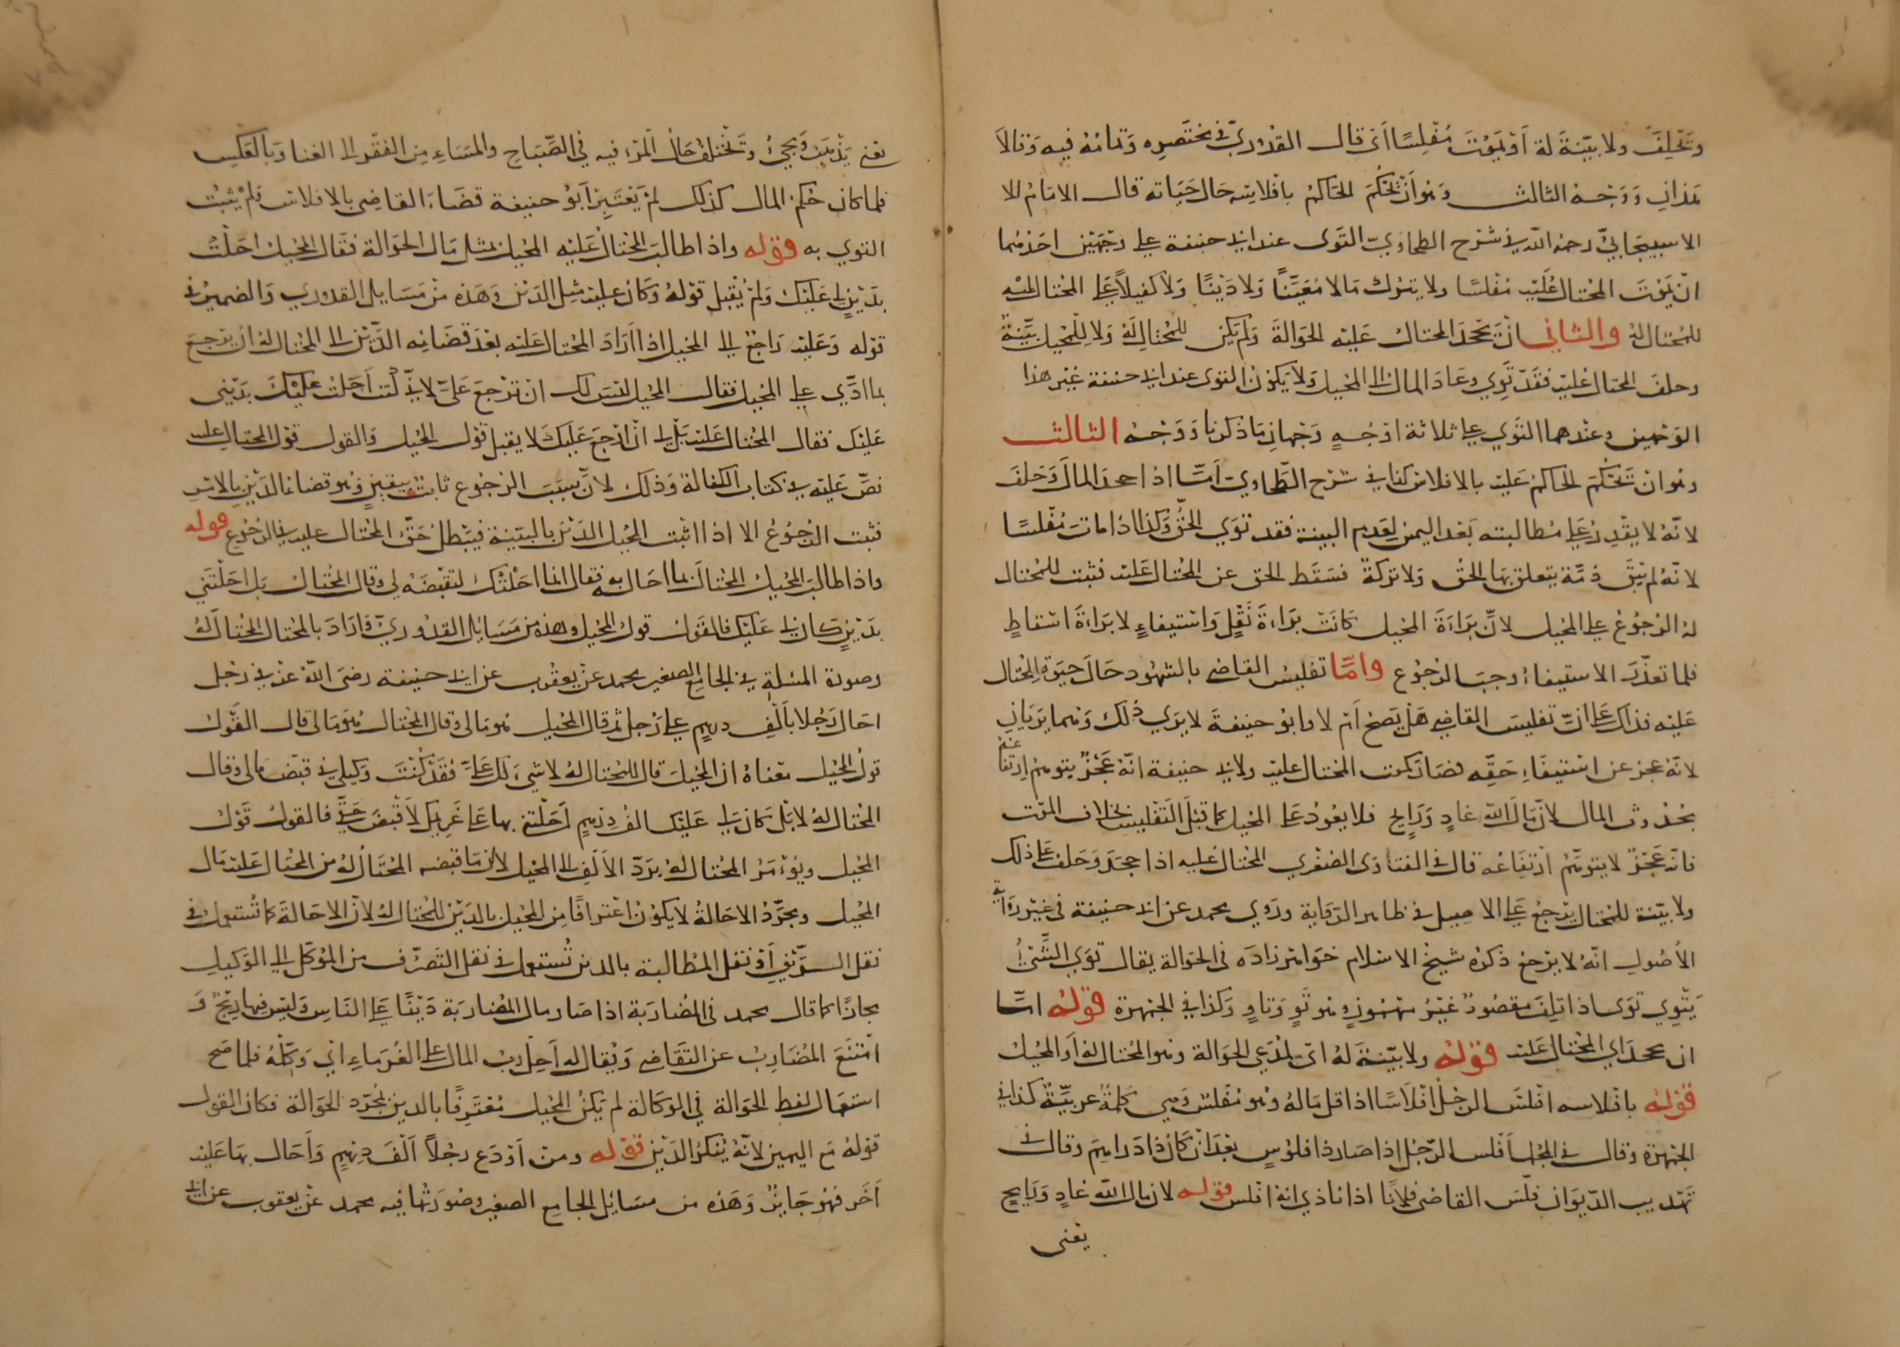 وتحلف ولا بينة له أو يموت مفلسا أي قال القدوري في مختصره وتمامه فيه وقالا
هذان ووجه الثالث وهو أن يحكم الحاكم بافلاسه حال حياته قال الامام الا
الاسبيجابي رحمه الله في شرح الطحاوي التوى عند ابي حنيفة على وجهين احدهما
ان يموت المحتال عليه مفلسا ولا يترك مالا معينا ولا دينا ولا كفيلا على المحتال عليه
للمحتال له والثاني ان يجحد المحتال عليه الحوالة ولم يكن للمحتال له ولا للمحيل بينة
وحلف المحتال عليه فقد توي وعاد المال الى المحيل ولا يكون التوى عند ابي حنيفة غير هذا
الوجهين وعندهما التوي على ثلاثة اوجه وجهان ما ذكرنا ووجه الثالث
وهو ان يحكم الحاكم عليه بالافلاس كذا في شرح الطحاوي أما اذا جحد المال وحلف
لانه لا يقدر على مطالبته بعد اليمين لعدم البينة فقد توي الحق وكذا اذا مات مفلسا
لانه لم يبق ذمة يتعلق بها الحق ولا تركة فسقط الحق عن المحتال عليه فثبت للمحتال
له الرجوع على المحيل لان براءة المحيل كانت براءة نقل واستيفاء لا براءة اسقاط
فلما تعذر الاستيفاء وجب الرجوع واما تفليس القاضي بالشهود حال حيوة المحتال
عليه فذاك على ان تفليس القاضي هل يصح ام لا وابو حنيفة لا يرى ذلك وهما يريان
لانه عجز عن استيفاء حقه فصار كموت المحتال عليه ولابي حنيفة انه عجز يتوهم ارتفاعه
بحدوث المال لان مال الله غاد ورايح فلا يعود على المحيل كما قبل التفليس بخلاف الموت
فانه عجز لا يتوهم ارتفاعه قال في الفتاوى الصغرى المحتال عليه اذا جحد وحلف على ذلك
ولا بينة للمحتال يرجع على الاصيل في ظاهر الرواية وروي محمد عن ابي حنيفة في غير رواية
الأصول انه لا يرجع ذكره شيخ الاسلام خواهر زاده في الحوالة يقال توي الشيء
يتوي توى اذا تلف مقصور غير مهموز وهو تو وتاو وكذا في الجمهرة قوله اما
ان يجحد اي المحتال عليه قوله ولا بينة له اي لمدعي الحوالة وهو المحتال له أو المحيل
قوله بافلاسه افلس الرجل افلاسا اذا قل ماله وهو مفلس وهي كلمة عربية كذا في
الجمهرة وقال في المجمل أفلس الرجل اذا صار ذا فلوس بعد ان كان ذا دراهم وقال في
تهذيب الديوان فلس القاضي فلانا اذا نادي انه افلس قوله لان مال الله غاد ورايح
يعني
يعني يذهب ويجيء وتختلف حال المرء فيه في الصباح والمساء من الفقر الى الغنا وبالعكس
فلما كان حكم المال كذلك لم يعتبر ابو حنيفة قضاء القاضي بالافلاس فلم يثبت
التوي به قوله واذا طالب المحتال عليه المحيل بمثل مال الحوالة فقال المحيل احلت
بدين لي عليك ولم يقبل قوله وكان عليه مثل الدين وهذه من مسايل القدوري والضمير في
قوله وعليه راجع الى المحيل اذا اراد المحتال عليه بعد قضائه الدين الى المحتال له ان يرجع
بما ادي على المحيل فقال المحيل ليس لك ان ترجع علي لاني كنت أحلت عليك بديني
عليك فقال المحتال عليه بل لي ان ارجع عليك لا يقبل قول المحيل والقول قول المحتال عليه
نص عليه في كتاب الكفالة وذلك لان سبب الرجوع ثابت بيقين وهو قضاء الدين بالامر
فثبت الرجوع الا اذا اثبت المحيل الدين بالبينة فيبطل حق المحتال عليه في الرجوع قوله
واذا طالب المحيل المحتال بما احال به فقال انما احلتك لتقبضه لي وقال المحتال بل احلتني
بدين كان لي عليك فالقول قول المحيل وهذه من مسايل القدوري فاراد بالمحتال المحتال له
وصورة المسئلة في الجامع الصغير محمد عن يعقوب عن ابي حنيفة رضي الله عنه في رجل
احال رجلا بالف درهم على رجل ثم قال المحيل هو مالي وقال المحتال هو مالي قال القول
قول المحيل معناه ان المحيل قال للمحتال له لا شيء لك علي فقد كنت وكيلي في قبض مالي وقال
المحتال له لا بل كان لي عليك الف درهم أحلتني بها على غريمك لاقبض حقي فالقول قول
المحيل ويؤمر المحتال له برد الألف الى المحيل لان ما قبضه المحتال له من المحتال عليه مال
المحيل ومجرد الاحالة لا يكون اعترافا من المحيل بالدين للمحتال له لان الاحالة كما تستعمل في
نقل الدين أو نقل المطالبة بالدين تستعمل في نقل التصرف من الموكل الى الوكيل
مجازا كما قال محمد في المضاربة اذا صار مال المضاربة دينا على الناس وليس فيها ربح و
امتنع المضارب عن التقاضي ويقال له أحل رب المال على الغرماء اي وكله فلما صح
استعمال لفظ الحوالة في الوكالة لم يكن المحيل معترفا بالدين بمجرد الحوالة فكان القول
قوله مع اليمين لانه ينكر الدين قوله ومن اودع رجلا ألف درهم وأحال بها عليه
آخر فهو جايز وهذه من مسايل الجامع الصغير وصورتها فيه محمد عن يعقوب عن ابي